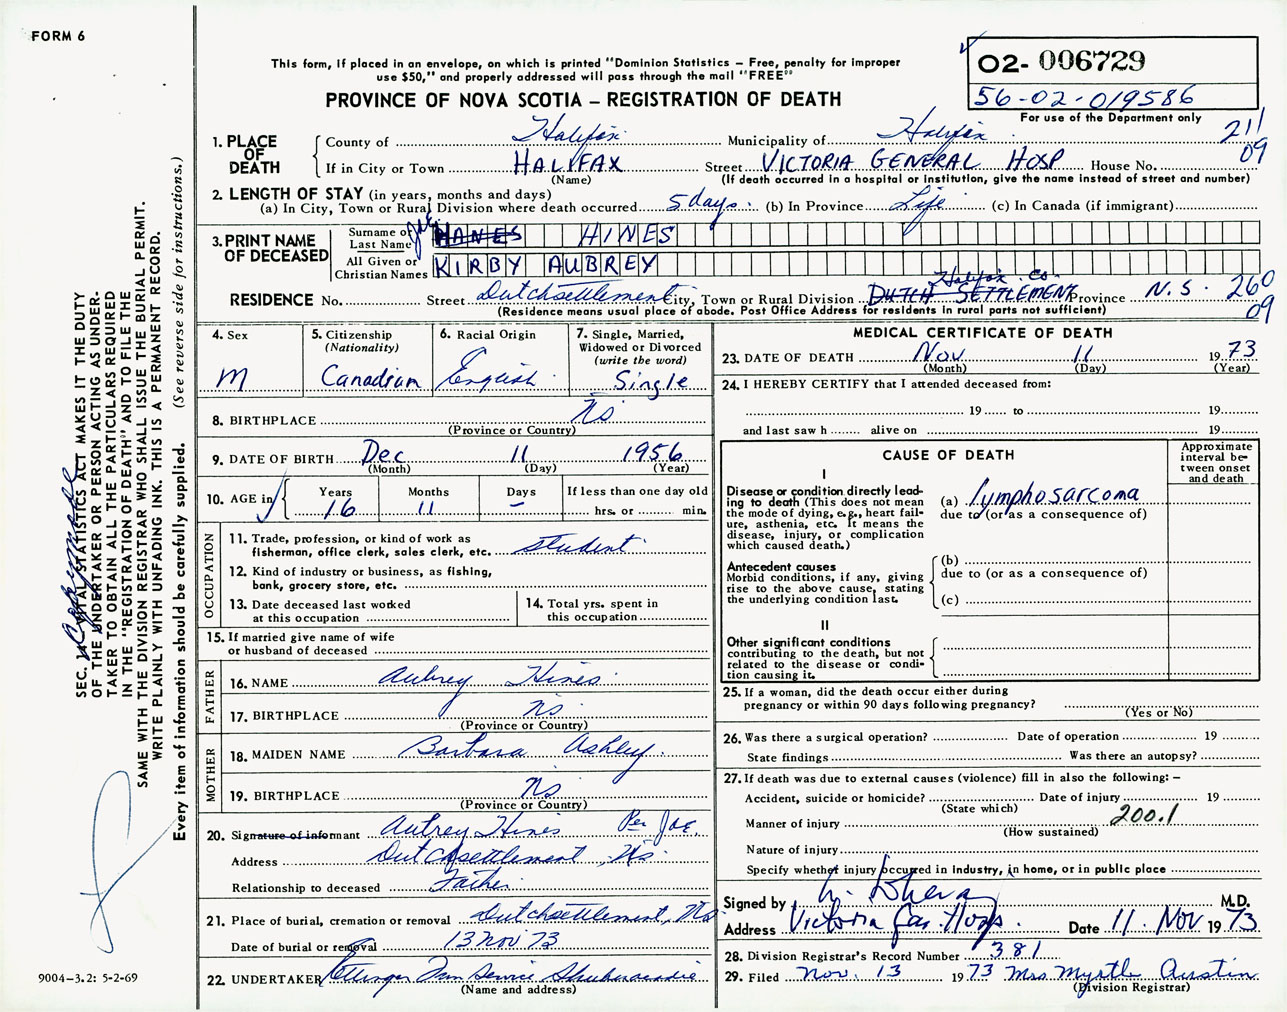 FORM 6
This form, if placed in an envelope, on which is printed "Dominion Statistics – Free, penalty for improper
use $50," and properly addressed will pass through the mail "FREE"
PROVINCE OF NOVA SCOTIA – REGISTRATION OF DEATH
02-006729
56-02-019586
For use of the Department only
211
09
1. PLACE OF DEATH
County of Halifax Municipality of Halifax
If in City or Town HALIFAX Street VICTORIA GENERAL HOSP House No.
(Name) (If death occurred in a hospital or institution, give the name instead of street and number)
2. LENGTH OF STAY (in years, months and days)
(a) In City, Town or Rural Division where death occurred 5 days. (b) In Province Life (c) In Canada (if immigrant)
3. PRINT NAME OF DECEASED
Surname or Last Name HANES HINES
All Given or Christian Names KIRBY AUBREY
Halifax Co.
RESIDENCE No. Street Dutchsettlement City, Town or Rural Division DUTCH SETTLEMENT Province N.S. 260
(Residence means usual place of abode. Post Office Address for residents in rural parts not sufficient) 09
4. Sex
M
5. Citizenship
(Nationality)
Canadian
6. Racial Origin
English
7. Single, Married,
Widowed or Divorced
(write the word)
Single
8. BIRTHPLACE NS
(Province or Country)
9. DATE OF BIRTH Dec 11 1956
(Month) (Day) (Year)
10. AGE in
Years Months Days If less than one day old
16 11 – hrs. or min.
OCCUPATION
11. Trade, profession, or kind of work as
fisherman, office clerk, sales clerk, etc. student
12. Kind of industry or business, as fishing,
bank, grocery store, etc.
13. Date deceased last worked
at this occupation
14. Total yrs. spent in
this occupation
15. If married give name of wife
or husband of deceased
FATHER
16. NAME Aubrey Hines
17. BIRTHPLACE NS
(Province or Country)
MOTHER
18. MAIDEN NAME Barbara Ashley
19. BIRTHPLACE NS
(Province or Country)
20. Signature of informant Aubrey Hines Per
Address Dutchsettlement, NS
Relationship to deceased Father
21. Place of burial, cremation or removal Dutchsettlement, NS
Date of burial or removal 13 Nov 73
22. UNDERTAKER Ettinger Fun Service Shubenacadie
(Name and address)
MEDICAL CERTIFICATE OF DEATH
23. DATE OF DEATH Nov 11 1973
(Month) (Day) (Year)
24. I HEREBY CERTIFY that I attended deceased from:
19 to 19
and last saw h alive on 19
CAUSE OF DEATH
Approximate
interval be-
tween onset
and death
I
Disease or condition directly lead-
ing to death (This does not mean
the mode of dying, e.g., heart fail-
ure, asthenia, etc. It means the
disease, injury, or complication
which caused death.)
(a) lymphosarcoma
due to (or as a consequence of)
Antecedent causes
Morbid conditions, if any, giving
rise to the above cause, stating
the underlying condition last.
(b)
due to (or as a consequence of)
(c)
II
Other significant conditions
contributing to the death, but not
related to the disease or condi-
tion causing it.
25. If a woman, did the death occur either during
pregnancy or within 90 days following pregnancy?
(Yes or No)
26. Was there a surgical operation? Date of operation 19
State findings Was there an autopsy?
27. If death was due to external causes (violence) fill in also the following: –
Accident, suicide or homicide? Date of injury 19
(State which)
Manner of injury 200.1
(How sustained)
Nature of injury
Specify whether injury occurred in industry, in home, or in public place
Signed by M.D.
Address Victoria Gen. Hosp. Date 11. Nov 1973
28. Division Registrar's Record Number 381
29. Filed Nov. 13 1973 Mrs. Myrtle Austin
(Division Registrar)
SEC. VITAL STATISTICS ACT MAKES IT THE DUTY
OF THE UNDERTAKER OR PERSON ACTING AS UNDER-
TAKER TO OBTAIN ALL THE PARTICULARS REQUIRED
IN THE "REGISTRATION OF DEATH" AND TO FILE THE
SAME WITH THE DIVISION REGISTRAR WHO SHALL ISSUE THE BURIAL PERMIT.
WRITE PLAINLY WITH UNFADING INK. THIS IS A PERMANENT RECORD.
Every item of information should be carefully supplied. (See reverse side for instructions.)
9004-3.2: 5-2-69